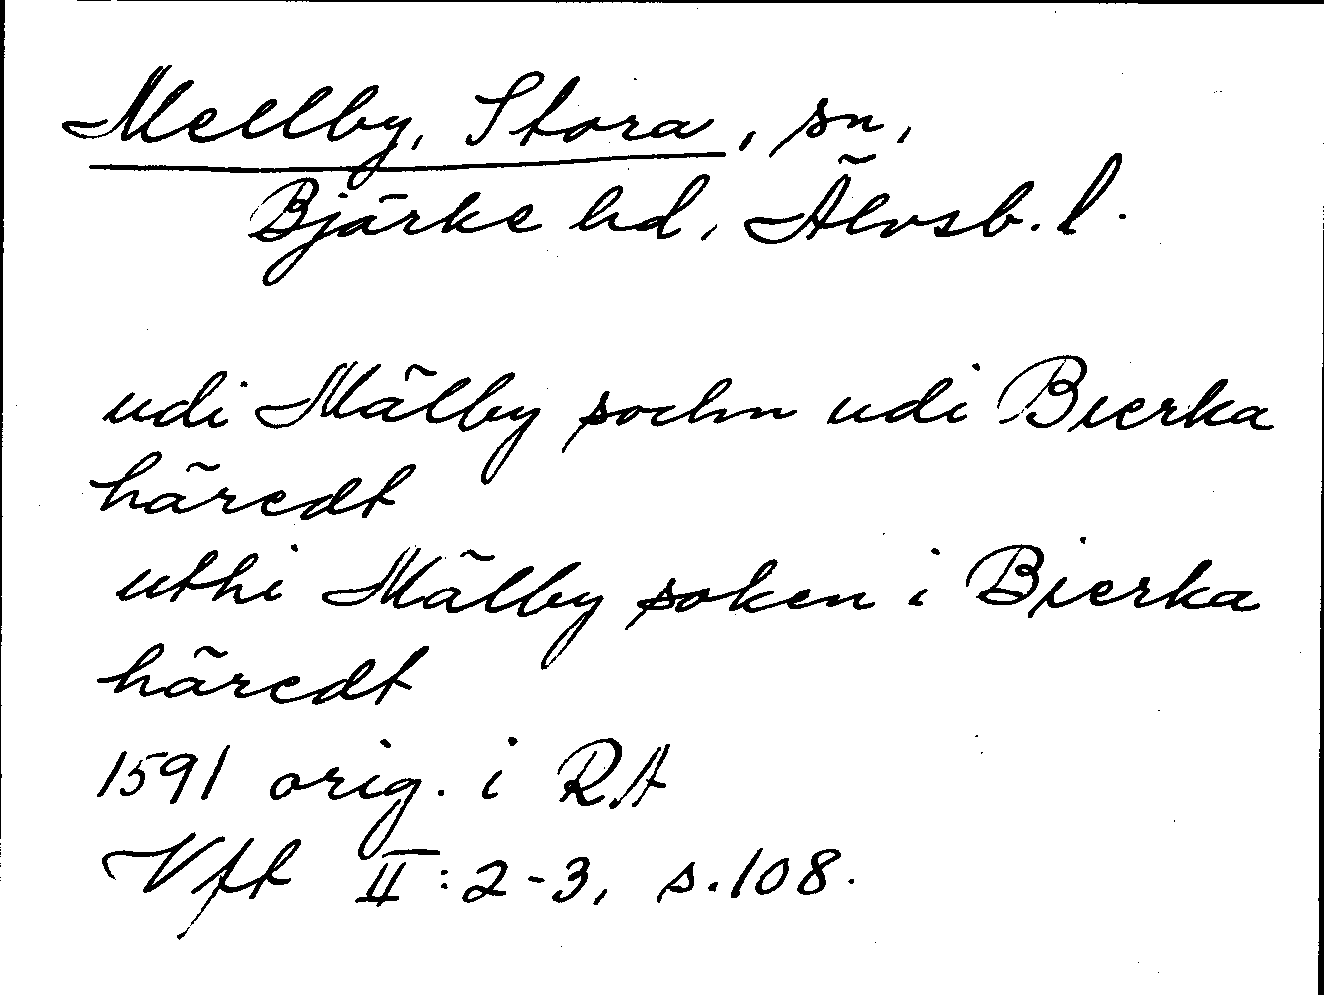 Mellby, Stora, sn,
Bjärke hd, Älvsb. l.
udi Mälby sochn udi Bierka
häredt
uthi Mälby soken i Bierka
häredt
1591 orig. i RA
Vft II:2-3, s.108.